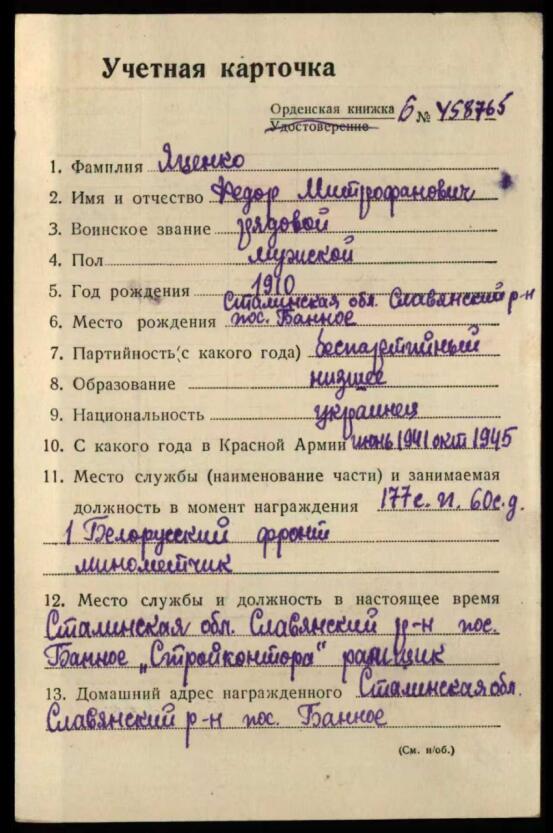 Учетная карточка
Орденская книжка Б № 458765
Удостоверение
1. Фамилия Яценко
2. Имя и отчество Федор Митрофанович
3. Воинское звание рядовой
4. Пол мужской
5. Год рождения 1910
Сталинская обл. Славянский р-н
6. Место рождения пос. Банное
7. Партийность (с какого года) беспартийный
8. Образование низшее
9. Национальность украинец
10. С какого года в Красной Армии июнь 1941 окт 1945
11. Место службы (наименование части) и занимаемая
должность в момент награждения 177 с. п. 60 с. д.
1 Белорусский фронт
минометчик
12. Место службы и должность в настоящее время
Сталинская обл. Славянский р-н пос.
Банное „Стройконтора"
13. Домашний адрес награжденного Сталинская обл.
Славянский р-н пос. Банное
(См. н/об.)